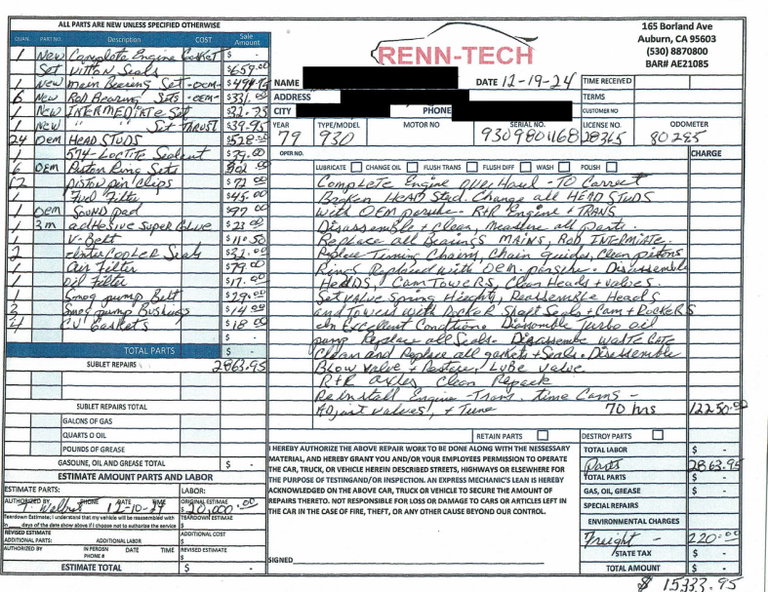 ALL PARTS ARE NEW UNLESS SPECIFIED OTHERWISE
QUAN. PART NO. DESCRIPTION COST Sale Amount
1 New Complete Engine Gasket $
Set Vitton Seals $ 659.00
1 New Main Bearing Set -OEM- $ 494.95
6 New Rod Bearing Sets -OEM- $ 331.00
1 New INTERMEDIATE Set $ 32.75
1 New " " Set-THRUST $ 39.95
24 OEM HEAD STUDS $ 528.00
1 574-Loctite Sealent $ 39.00
6 OEM Piston Ring Sets $ 302.00
12 piston pin clips $ 72.00
1 Fuel Filter $ 45.00
1 OEM Sound pad $ 97.00
1 3m adhesive Super Glue $ 23.00
1 V-Belt $ 11.50
2 interCOOLER Seals $ 32.00
1 Air Filter $ 79.00
1 Oil Filter $ 17.00
1 Smog pump Belt $ 29.00
3 Smog pump Bushings $ 14.00
4 CV Gaskets $ 18.00
$ -
TOTAL PARTS $ -
SUBLET REPAIRS 2863.95
SUBLET REPAIRS TOTAL
GALONS OF GAS
QUARTS O OIL
POUNDS OF GREASE
GASOLINE, OIL AND GREASE TOTAL $ -
ESTIMATE AMOUNT PARTS AND LABOR
ESTIMATE PARTS: LABOR:
AUTHORIZED BY PHONE DATE TIME ORIGINAL ESTIMAE
12-10-24 $ 20,000.00
Teardown Estimate: I understand that my vehicle will be reassembled with TEARDOWN ESTIMAE
in ___ days of the date show above if I choose not to authorise the service $
REVISED ESTIMATE ADDITIONAL COST
ADDITIONAL PARTS: ADDITIONAL LABOR $
AUTHORIZED BY IN FERDSN DATE TIME REVISED ESTIMATE
PHONE #
ESTIMATE TOTAL $ -
RENN-TECH
165 Borland Ave
Auburn, CA 95603
(530) 8870800
BAR# AE21085
NAME DATE 12-19-24 TIME RECEIVED
ADDRESS TERMS
CITY PHONE CUSTOMER NO
YEAR TYPE/MODEL MOTOR NO SERIAL NO. LICENSE NO. ODOMETER
79 930 9309801168 28365 80285
OPER NO. CHARGE
LUBRICATE CHANGE OIL FLUSH TRANS FLUSH DIFF WASH POLISH
Complete Engine OverHaul - To Correct
Broken HEAD Stud. Change all HEAD STUDS
with OEM porsche - R+R Engine + TRANS
Disassemble + Clean, Measure all parts.
Replace all Bearings MAINS, ROD, INTERMIATE.
Replce Timing Chains, Chain guides, Clean pistons
Rings Replaced with OEM-porsche - Disassemble
HeADS, Cam Towers, Clean Heads + valves.
Set valve Spring Height, Reassemble Heads
and Towers with Rocker Shaft Seals + Cam + Rockers
in Excellent Condition. Dissomble Turbo oil
pump Replace all Seals. Disassembe Waste Gate
Clean and Replace all gaskets + Seals. Disassemble
Blow valve + Restore, Lube valve
R+R axles Clean Repack
Reinstall Engine - Trans. time Cams -
Adjust valves, + Tune 70 hrs 12250.00
RETAIN PARTS DESTROY PARTS
I HEREBY AUTHORIZE THE ABOVE REPAIR WORK TO BE DONE ALONG WITH THE NESSESSARY
MATERIAL, AND HEREBY GRANT YOU AND/OR YOUR EMPLOYEES PERMISSION TO OPERATE
THE CAR, TRUCK, OR VEHICLE HEREIN DESCRIBED STREETS, HIGHWAYS OR ELSEWHERE FOR
THE PURPOSE OF TESTINGAND/OR INSPECTION. AN EXPRESS MECHANIC'S LEAN IS HEREBY
ACKNOWLEDGED ON THE ABOVE CAR, TRUCK OR VEHICLE TO SECURE THE AMOUNT OF
REPAIRS THERETO. NOT RESPONSIBLE FOR LOSS OR DAMAGE TO CARS OR ARTICLES LEFT IN
THE CAR IN THE CASE OF FIRE, THEFT, OR ANY OTHER CAUSE BEYOND OUR CONTROL.
SIGNED
TOTAL LABOR $ -
Parts 2863.95
TOTAL PARTS $ -
GAS, OIL, GREASE $ -
SPECIAL REPAIRS
ENVIRONMENTAL CHARGES
Freight - 220.00
STATE TAX $ -
TOTAL AMOUNT $ -
$ 15333.95